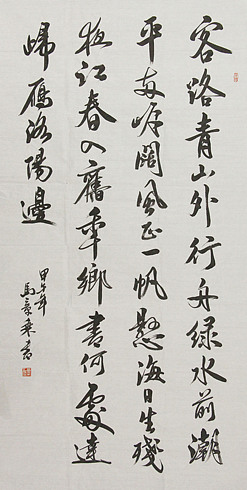 客路青山外行舟绿水前潮
平两岸阔风正一帆懸海日生残
夜江春入舊年鄉書何處達
歸雁洛陽邊
甲午年
馬
書